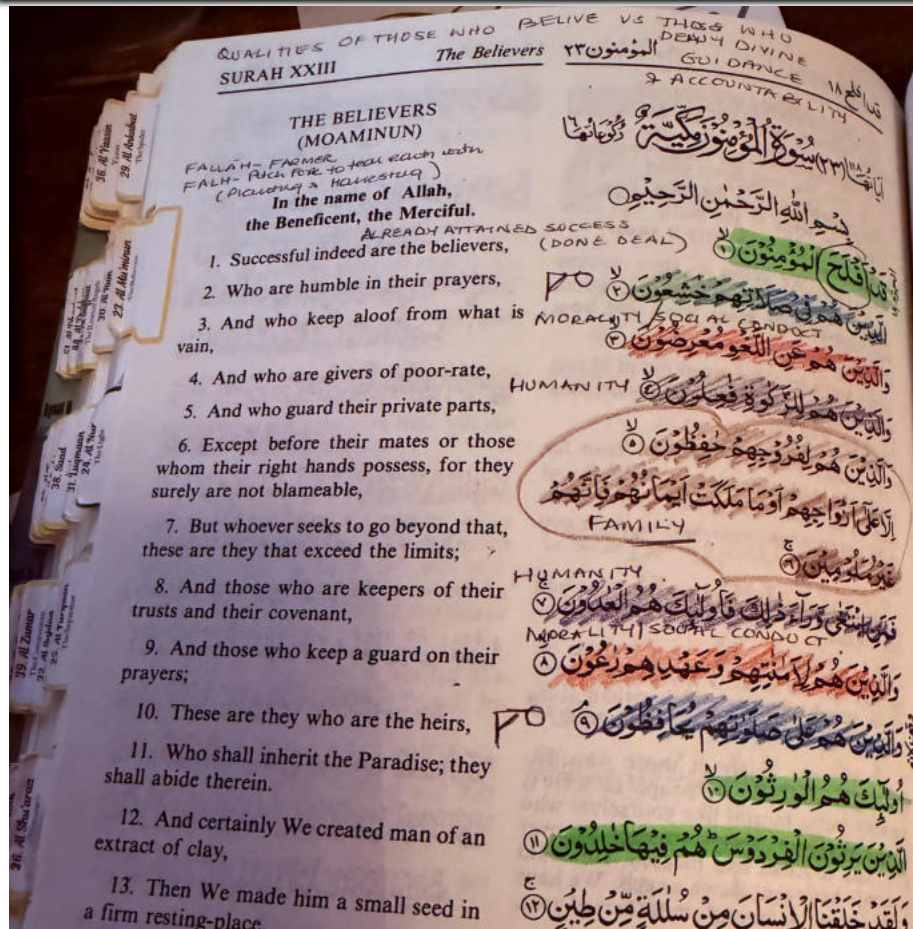 QUALITIES OF THOSE WHO BELIVE VS THOSE WHO
DENY DIVINE
GUIDANCE
& ACCOUNTABILITY
SURAH XXIII
The Believers
المؤمنون ٢٣
قد افلح ١٨
THE BELIEVERS
(MOAMINUN)
FALLAH - FARMER
FALH - Pitch Fork to tear each
(Planting & Harvesting)
In the name of Allah,
the Beneficent, the Merciful.
ALREADY ATTAINED SUCCESS
(DONE DEAL)
1. Successful indeed are the believers,
2. Who are humble in their prayers,
3. And who keep aloof from what is
vain,
4. And who are givers of poor-rate,
5. And who guard their private parts,
6. Except before their mates or those
whom their right hands possess, for they
surely are not blameable,
7. But whoever seeks to go beyond that,
these are they that exceed the limits;
8. And those who are keepers of their
trusts and their covenant,
9. And those who keep a guard on their
prayers;
10. These are they who are the heirs,
11. Who shall inherit the Paradise; they
shall abide therein.
12. And certainly We created man of an
extract of clay,
13. Then We made him a small seed in
a firm resting-place
اٰيَاتُهَا ١١٨ (٢٣) سُوْرَةُ الْمُؤْمِنُوْنَ مَكِّيَّةٌ رُكُوْعَاتُهَا ٦
بِسْمِ اللّٰهِ الرَّحْمٰنِ الرَّحِيْمِ
قَدْ اَفْلَحَ الْمُؤْمِنُوْنَ ۙ﴿١﴾
الَّذِيْنَ هُمْ فِيْ صَلَاتِهِمْ خٰشِعُوْنَ ۙ﴿٢﴾
MORALITY/SOCIAL CONDUCT
وَالَّذِيْنَ هُمْ عَنِ اللَّغْوِ مُعْرِضُوْنَ ﴿٣﴾
HUMANITY
وَالَّذِيْنَ هُمْ لِلزَّكٰوةِ فٰعِلُوْنَ ۙ﴿٤﴾
وَالَّذِيْنَ هُمْ لِفُرُوْجِهِمْ حٰفِظُوْنَ ۙ﴿٥﴾
اِلَّا عَلٰٓى اَزْوَاجِهِمْ اَوْ مَا مَلَكَتْ اَيْمَانُهُمْ فَاِنَّهُمْ
FAMILY
غَيْرُ مَلُوْمِيْنَ ۚ﴿٦﴾
HUMANITY
فَمَنِ ابْتَغٰى وَرَآءَ ذٰلِكَ فَاُولٰٓئِكَ هُمُ الْعٰدُوْنَ ۚ﴿٧﴾
MORALITY/SOCIAL CONDUCT
وَالَّذِيْنَ هُمْ لِاَمٰنٰتِهِمْ وَعَهْدِهِمْ رٰعُوْنَ ﴿٨﴾
وَالَّذِيْنَ هُمْ عَلٰى صَلَوٰتِهِمْ يُحَافِظُوْنَ ﴿٩﴾
اُولٰٓئِكَ هُمُ الْوٰرِثُوْنَ ۙ﴿١٠﴾
الَّذِيْنَ يَرِثُوْنَ الْفِرْدَوْسَ ۭ هُمْ فِيْهَا خٰلِدُوْنَ ﴿١١﴾
وَلَقَدْ خَلَقْنَا الْاِنْسَانَ مِنْ سُلٰلَةٍ مِّنْ طِيْنٍ ۚ﴿١٢﴾
36. Al Yaasin
29. Al Ankabut
The Spider
23. Al Mu'minun
The Believers
30. Al Rum
38. Saad
31. Luqmaan
24. Al Nur
The Light
39. Al Zumar
32. Al Sajdaa
25. Al Furqaan
26. Al Shu'araa